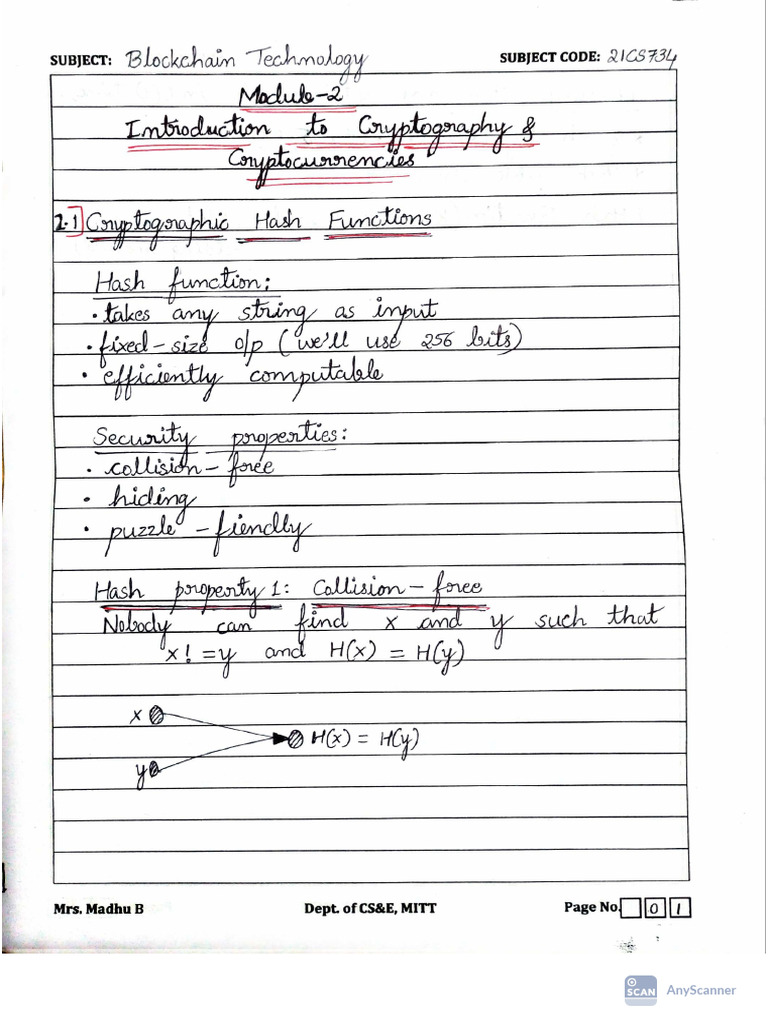 SUBJECT: Blockchain Technology SUBJECT CODE: 21CS734
Module-2
Introduction to Cryptography &
Cryptocurrencies
2.1 Cryptographic Hash Functions
Hash function:
• takes any string as input
• fixed-size o/p (we'll use 256 bits)
• efficiently computable
Security properties:
• collision-free
• hiding
• puzzle-fiendly
Hash property 1: Collision-free
Nobody can find x and y such that
x! =y and H(x) = H(y)
x
H(x) = H(y)
y
Mrs. Madhu B Dept. of CS&E, MITT Page No. 0 1
SCAN AnyScanner